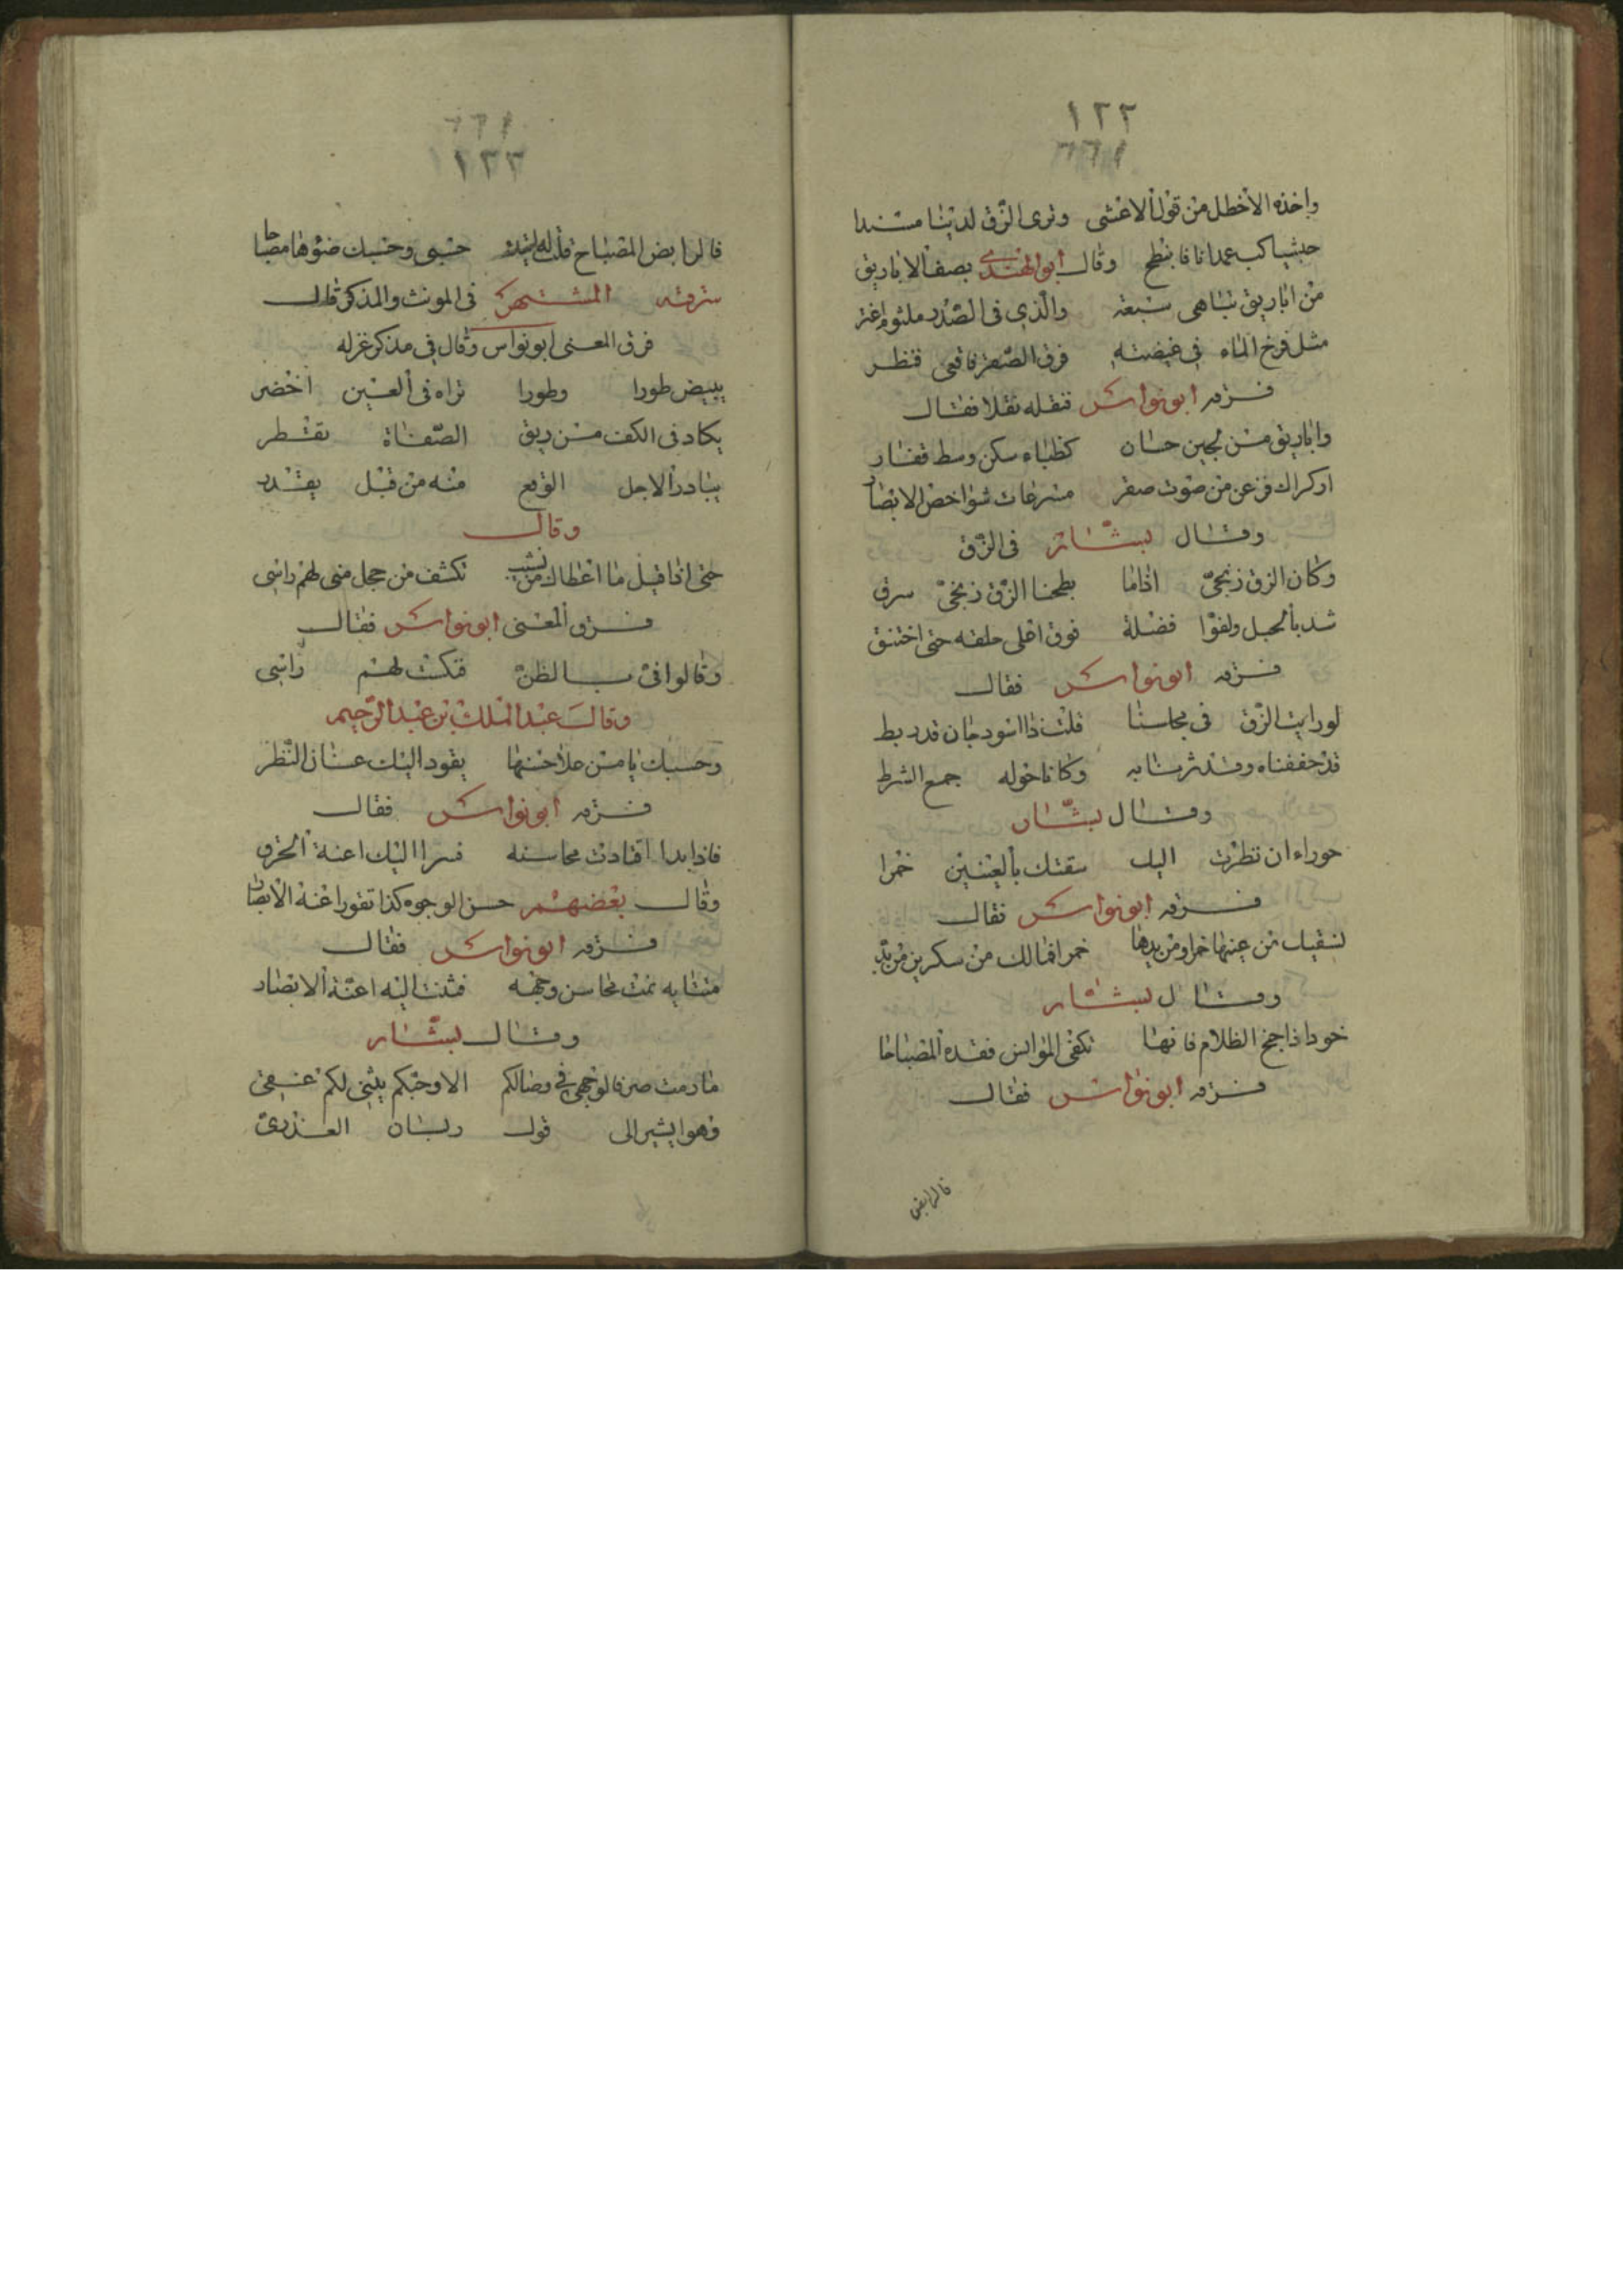 ١٢٢
واخذه الاخطل من قول الاعشى وترى الزق لدينا مسندا
حبشيا كب عمدا فانبطح وقال ابو الهندى يصف الاباريق
من اباريق تباهى سبعة والذي فى الصدر ملثوم اغر
مثل فرخ الماء في غيضته فرق الصقر فاقعى فنظر
سرقه ابو نواس فنقله نقلا فقال
واباريق من لجين حسان كظباء سكن وسط قفار
او كراك فزعن من صوت صقر مسرعات شواخص الابصار
وقال بشار فى الزق
وكان الزق زنجى اذا ما بطحنا الزق زنجى سرق
شد بالحبل ولفوا فضلة فوق اعلى حلقه حتى اختنق
سرقه ابو نواس فقال
لو رايت الزق فى مجلسنا قلت ذا اسود جان قد ربط
قد خففناه وقد ثرنا به وكانا حوله جمع الشرط
وقال بشار
حوراء ان نظرت اليك سقتك بالعينين خمرا
سرقه ابو نواس فقال
تسقيك من عينها خمرا ومن يدها خمرا فما لك من سكرين من بد
وقال بشار
خود اذا جنح الظلام فانها تكفى الموانس فقده المصباحا
سرقه ابو نواس فقال
قال ابغنى
١٢٣
قال ابغنى المصباح قلت له اتئد حسبى وحسبك ضوءها مصباحا
سرقه المشتهر فى المونث والمذكر قال
سرق المعنى ابو نواس وقال في مذكر غزله
يبيض طورا وطورا تراه فى العين اخضر
يكاد فى الكف من ريق الصفاة يقطر
يبادر الاجل الوقع منه من قبل يقدر
وقال
حتى اذا قيل ما اعطاك من نشب تكشف من خجل منى لهم راسى
سرق المعنى ابو نواس فقال
وقالوا فى بالظن فنكست لهم راسى
وقال عبد الملك بن عبد الرحيم
وحسبك يا من حلا حسنها يقود اليك عنان النظر
سرقه ابو نواس فقال
فاذا بدا اقتادت محاسنه قسرا اليك اعنة الحدق
وقال بعضهم حسن الوجوه كذا تقود اعنة الابصار
سرقه ابو نواس فقال
متتايه تمت محاسن وجهه فثنت اليه اعنة الابصار
وقال بشار
ما رمت صرفا لوجهى في وصالكم الا وحبكم يثنى لكم عنقى
وهو يشير الى قول ربان العذرى